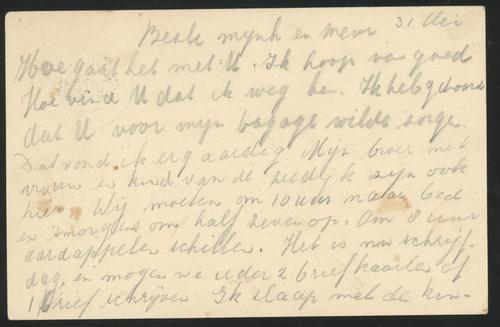 31 Mei
Beste mijnh en mevr
Hoe gaat het met U. Ik hoop van goed
Hoe vind U dat ik weg ben. Ik heb gehoord
dat U voor mijn bagage wilde zorgen.
Dat vond ik erg aardig. Mijn broer met
vrouw en kind van de zeedijk zijn ook
hier. Wij moeten om 10 uur naar bed
en smorgens om half zeven op. Om 8 uur
aardappelen schillen. Het is nu schrijf-
dag en mogen we ieder 2 briefkaarten of
1 Brief schrijven Ik slaap met de kin-